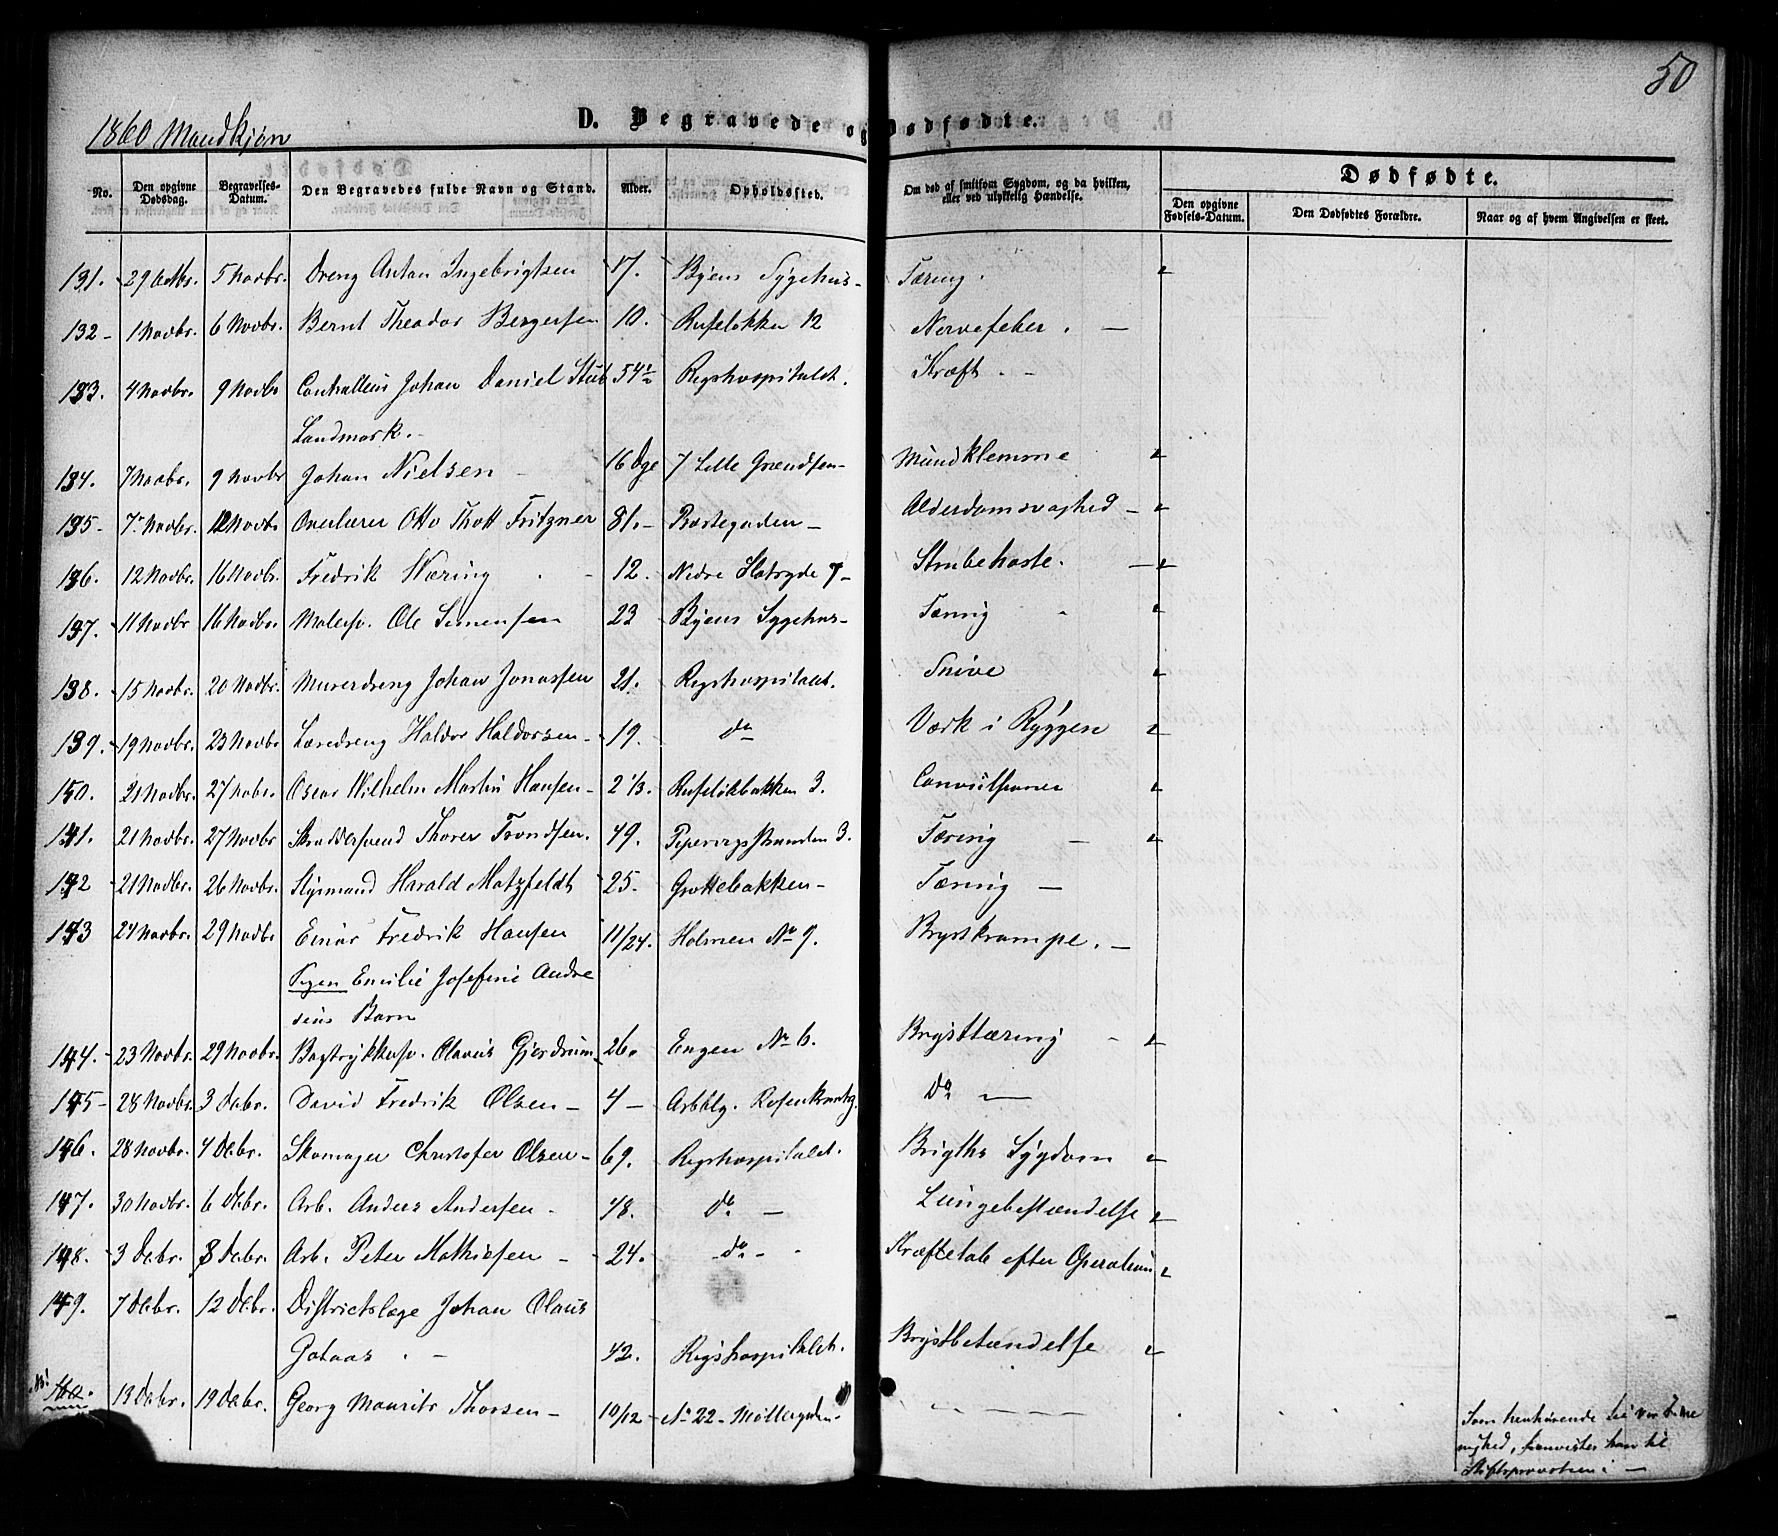 50
1860 Mandkjøn
D. Begravede og Dødfødte.
No. Den opgivne Dødsdag. Begravelses-Datum. Den Begravedes fulde Navn og Stand. Alder. Opholdssted. Om død af smitsom Sygdom, og da hvilken, eller ved ulykkelig Hændelse. Dødfødte. Den opgivne Fødsels-Datum. Den Dødfødtes Forældre. Naar og af hvem Angivelsen er skeet.
131. 29 Octbr. 5 Novbr. Dreng Anton Ingebrigtsen 17. Byens Sygehus - Tæring.
132 - 1 Novbr. 6 Novbr. Bernt Theodor Bergersen 10. Ruseløkken 12 Nervefeber. -
133. 4 Novbr. 9 Novbr Johan Daniel Stub 54 1/2 Rigshospitalet. Kræft. -
Landmark. -
134. 7 Novbr. 9 Novbr Johan Nielsen - 16 Dge 7 Lille Grændsen - Mundklemme
135 - 7 Novbr. 12 Novbr Overlærer Otto Thott Fritzner 81. - Præstegaden - Alderdomsvaghed -
136. 12 Novbr. 16 Novbr. Fredrik Næring - 12. Nedre Slotsgde 7 - Strubehoste. -
137. 11 Novbr 16 Novbr. Malersv. Ole Simensen 23 Byens Sygehus - Tæring
138. 15 Novbr. 20 Novbr. Murerdreng Johan Jonassen 21. Rigshospitalet. Snive
139. 19 Novbr. 23 Novbr Læredreng Haldor Haldorsen - 19. do Værk i Ryggen
150. 21 Novbr. 27 Nobr. Oscar Wilhelm Martin Hansen - 2 1/3. Ruseløkbakken 3. Convultioner
141. 21 Novbr. 27 Novbr Skræddersvend Thorer Trondsen. 49. Pipervigsstranden 3. Tæring -
142 21 Novbr. 26 Novbr. Styrmand Harald Motzfeldt 25. Grottebakken - Tæring -
143 24 Novbr. 29 Novbr Einar Fredrik Hansen 11/24. Holmen No 9. Brystkrampe. -
Pigen Emilie Josefine Andre
sens Barn
144. 23 Novbr. 29 Novbr. Bogtrykkersv. Olavus Gjerdrum 26. Engen No 6. Brysttæring
145 - 28 Novbr. 3 Debr. David Fredrik Olsen - 4 - Arbblg. Rosenkrantzg. Do -
146. 28 Novbr. 4 Debr. Skomager Christofer Olsen - 69. Rigshospitalet. Brigths Sygdom
147. 30 Novbr. 6 Debr. Arb. Anders Andersen - 48. do - Lungebetændelse
148. 3 Debr. 8 Debr. Arb. Peter Mathisen - 24. - do - - Kræftelab efter Operation
149. 7 Debr. 12 Debr. Districtslæge Johan Olaus
Gotaas. - 42. Rigshospitalet. Brystbetændelse
150. 13 Debr. 19 Debr. Georg Maurits Thorsen - 10/12 No 22 - Møllergden -
Som henhørende til vor Frue
nighed, henvistes han til
Stiftsprovsten. -